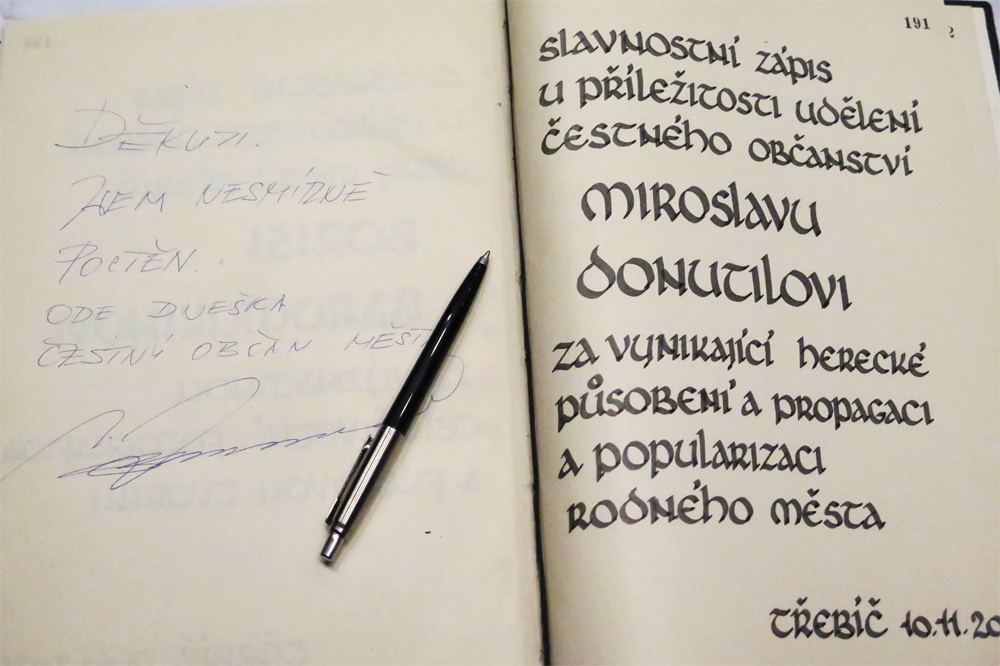 DĚKUJI.
JSEM NESMÍRNĚ
POCTĚN.
ODE DNEŠKA
ČESTNÝ OBČAN
191
slavnostní zápis
u příležitosti udělení
čestného občanství
Miroslavu
Donutilovi
za vynikající herecké
působení a propagaci
a popularizaci
rodného města
Třebíč 10.11.20